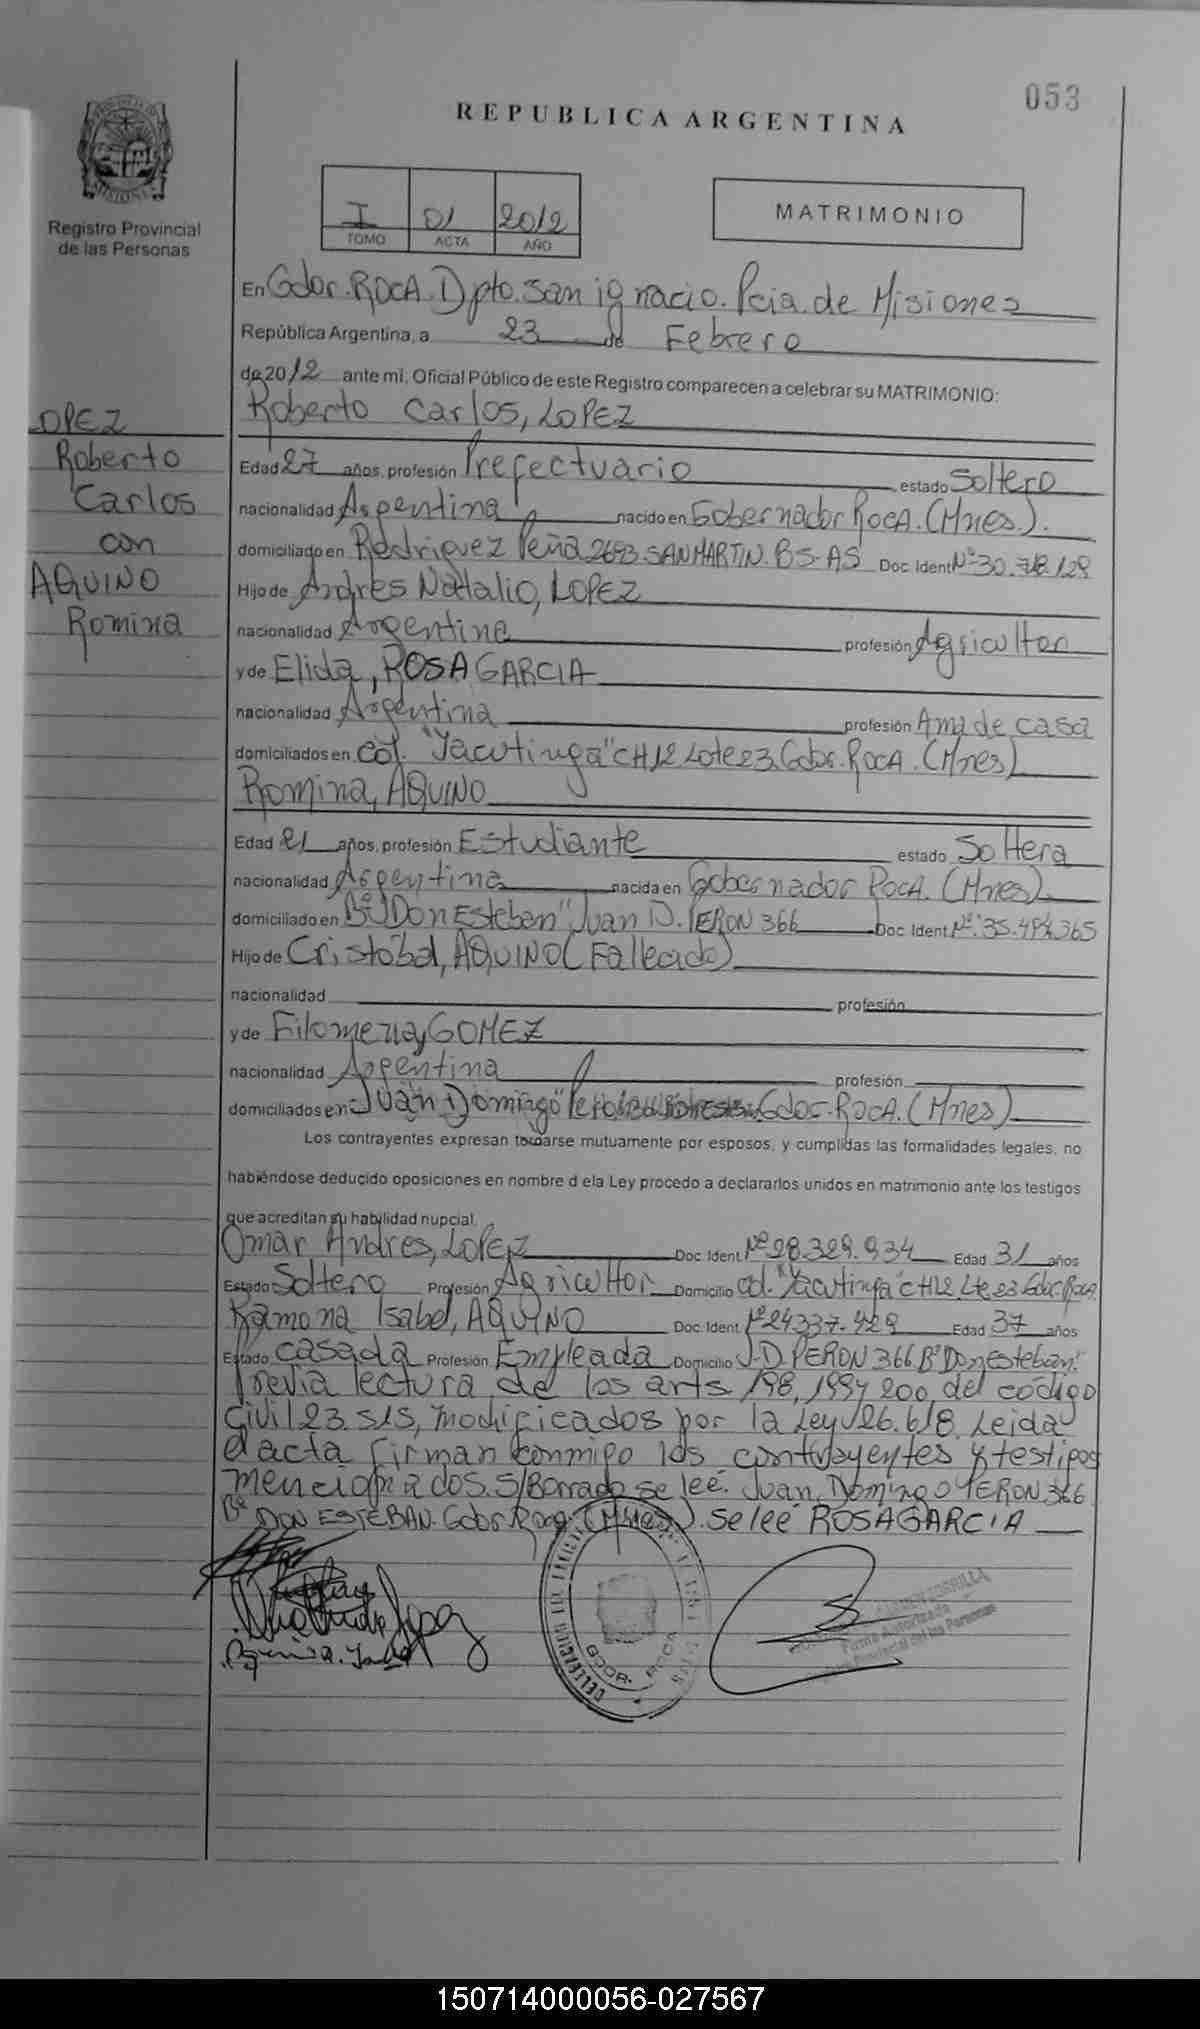 053
REPUBLICA ARGENTINA
Registro Provincial
de las Personas
I 01 2012
TOMO ACTA AÑO
MATRIMONIO
En Gdor. ROCA. Dpto. San ignacio. Pcia. de Misiones
República Argentina, a 23 de Febrero
de 2012 ante mi, Oficial Público de este Registro comparecen a celebrar su MATRIMONIO:
Roberto Carlos, LOPEZ
LOPEZ
Roberto
Carlos
con
AQUINO
Romina
Edad 27 años, profesión Prefectuario estado Soltero
nacionalidad Argentina nacido en Gobernador ROCA. (Mnes.).
domiciliado en Rodriguez Peña 2693 SAN MARTIN. BS-AS Doc Ident Nº 30.718.129
Hijo de Andres Natalio, LOPEZ
nacionalidad Argentina profesión Agricultor
y de Elida, ROSA GARCIA
nacionalidad Argentina profesión Ama de casa
domiciliados en Col. "Yacutinga" CH12 Lote 23. Gdor. ROCA. (Mnes)
Romina, AQUINO
Edad 21 años, profesión Estudiante estado Soltera
nacionalidad Argentina nacida en Gobernador ROCA. (Mnes)
domiciliado en Bº "DON Esteban" Juan D. PERON 366 Doc Ident Nº 35.494.365
Hijo de Cristóbal, AQUINO (Falleado)
nacionalidad profesión
y de Filomena, GOMEZ
nacionalidad Argentina profesión
domiciliados en Juan Domingo Gdor. ROCA. (Mnes)
Los contrayentes expresan tomarse mutuamente por esposos, y cumplidas las formalidades legales, no
habiéndose deducido oposiciones en nombre d ela Ley procedo a declararlos unidos en matrimonio ante los testigos
que acreditan su habilidad nupcial.
Omar Andres, LOPEZ Doc Ident Nº 28.329.934 Edad 31 años
Estado Soltero Profesión Agricultor Domicilio Col. "Yacutinga" CH12 Lte 23 Gdor. ROCA
Ramona Isabel, AQUINO Doc. Ident. Nº 24337.429 Edad 37 años
Estado Casada Profesión Empleada Domicilio J. D. PERON 366. Bº Don Esteban.
Previa lectura de los arts 198, 199 y 200 del código
Civil 23.515, modificados por la Ley 26.618. Leida
el acta firman conmigo los contrayentes y testigos
mencionados. S/Borrado se leé: Juan Domingo PERON 366
Bº DON ESTEBAN. Gdor Roca (Mnes). Se leé ROSA GARCIA
GDOR. ROCA
Firma Autorizada
Provincial del las Personas
150714000056-027567